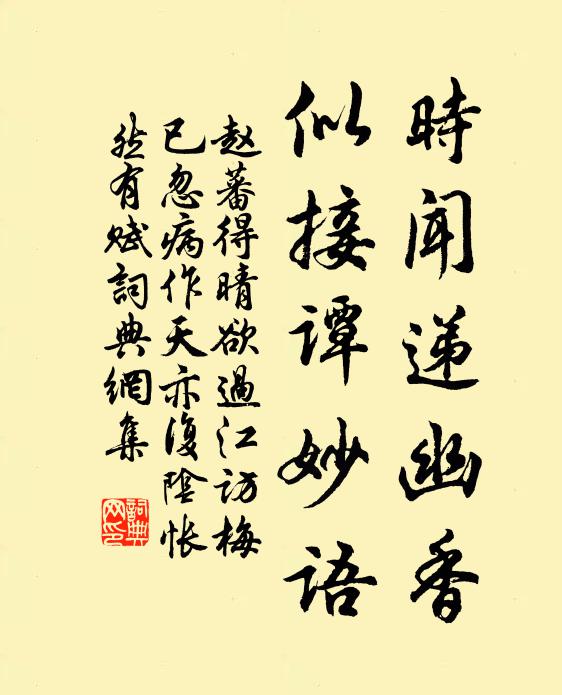 時闻递幽香
似接谭妙语
赵蕃得晴欲過江访梅
已忽病作天亦復陰怅
然有赋詞典網集
詞典网印